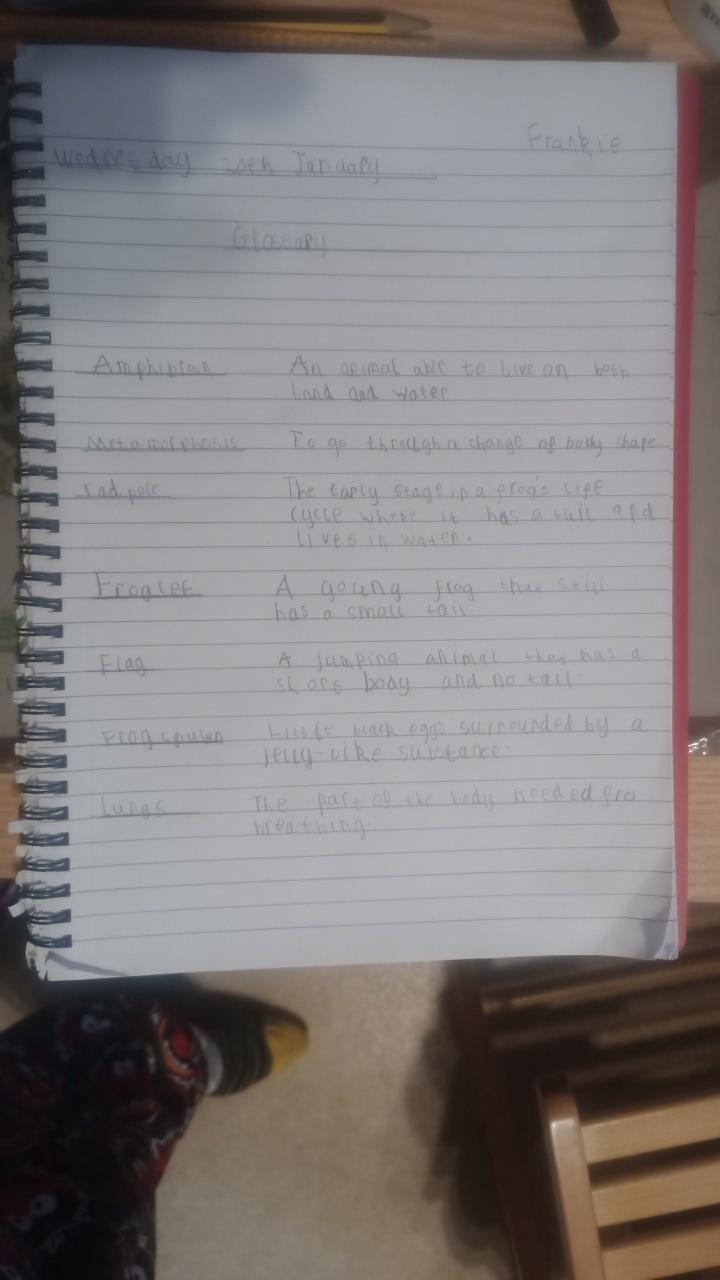 Frankie
Wednesday 20th January
Glossary
Amphibian An animal able to live on both
land and water
Metamorphosis To go through a change of body shape
Tadpole The Early stage in a frog's life
cycle where it has a tail and
lives in water.
Froglet A goung frog that still
has a small tail
Frag A jumping animal that has a
short body and no tail.
Frogspawn Little black eggs surrounded by a
jelly-like substance.
Lungs The part of the body needed fro
breathing.